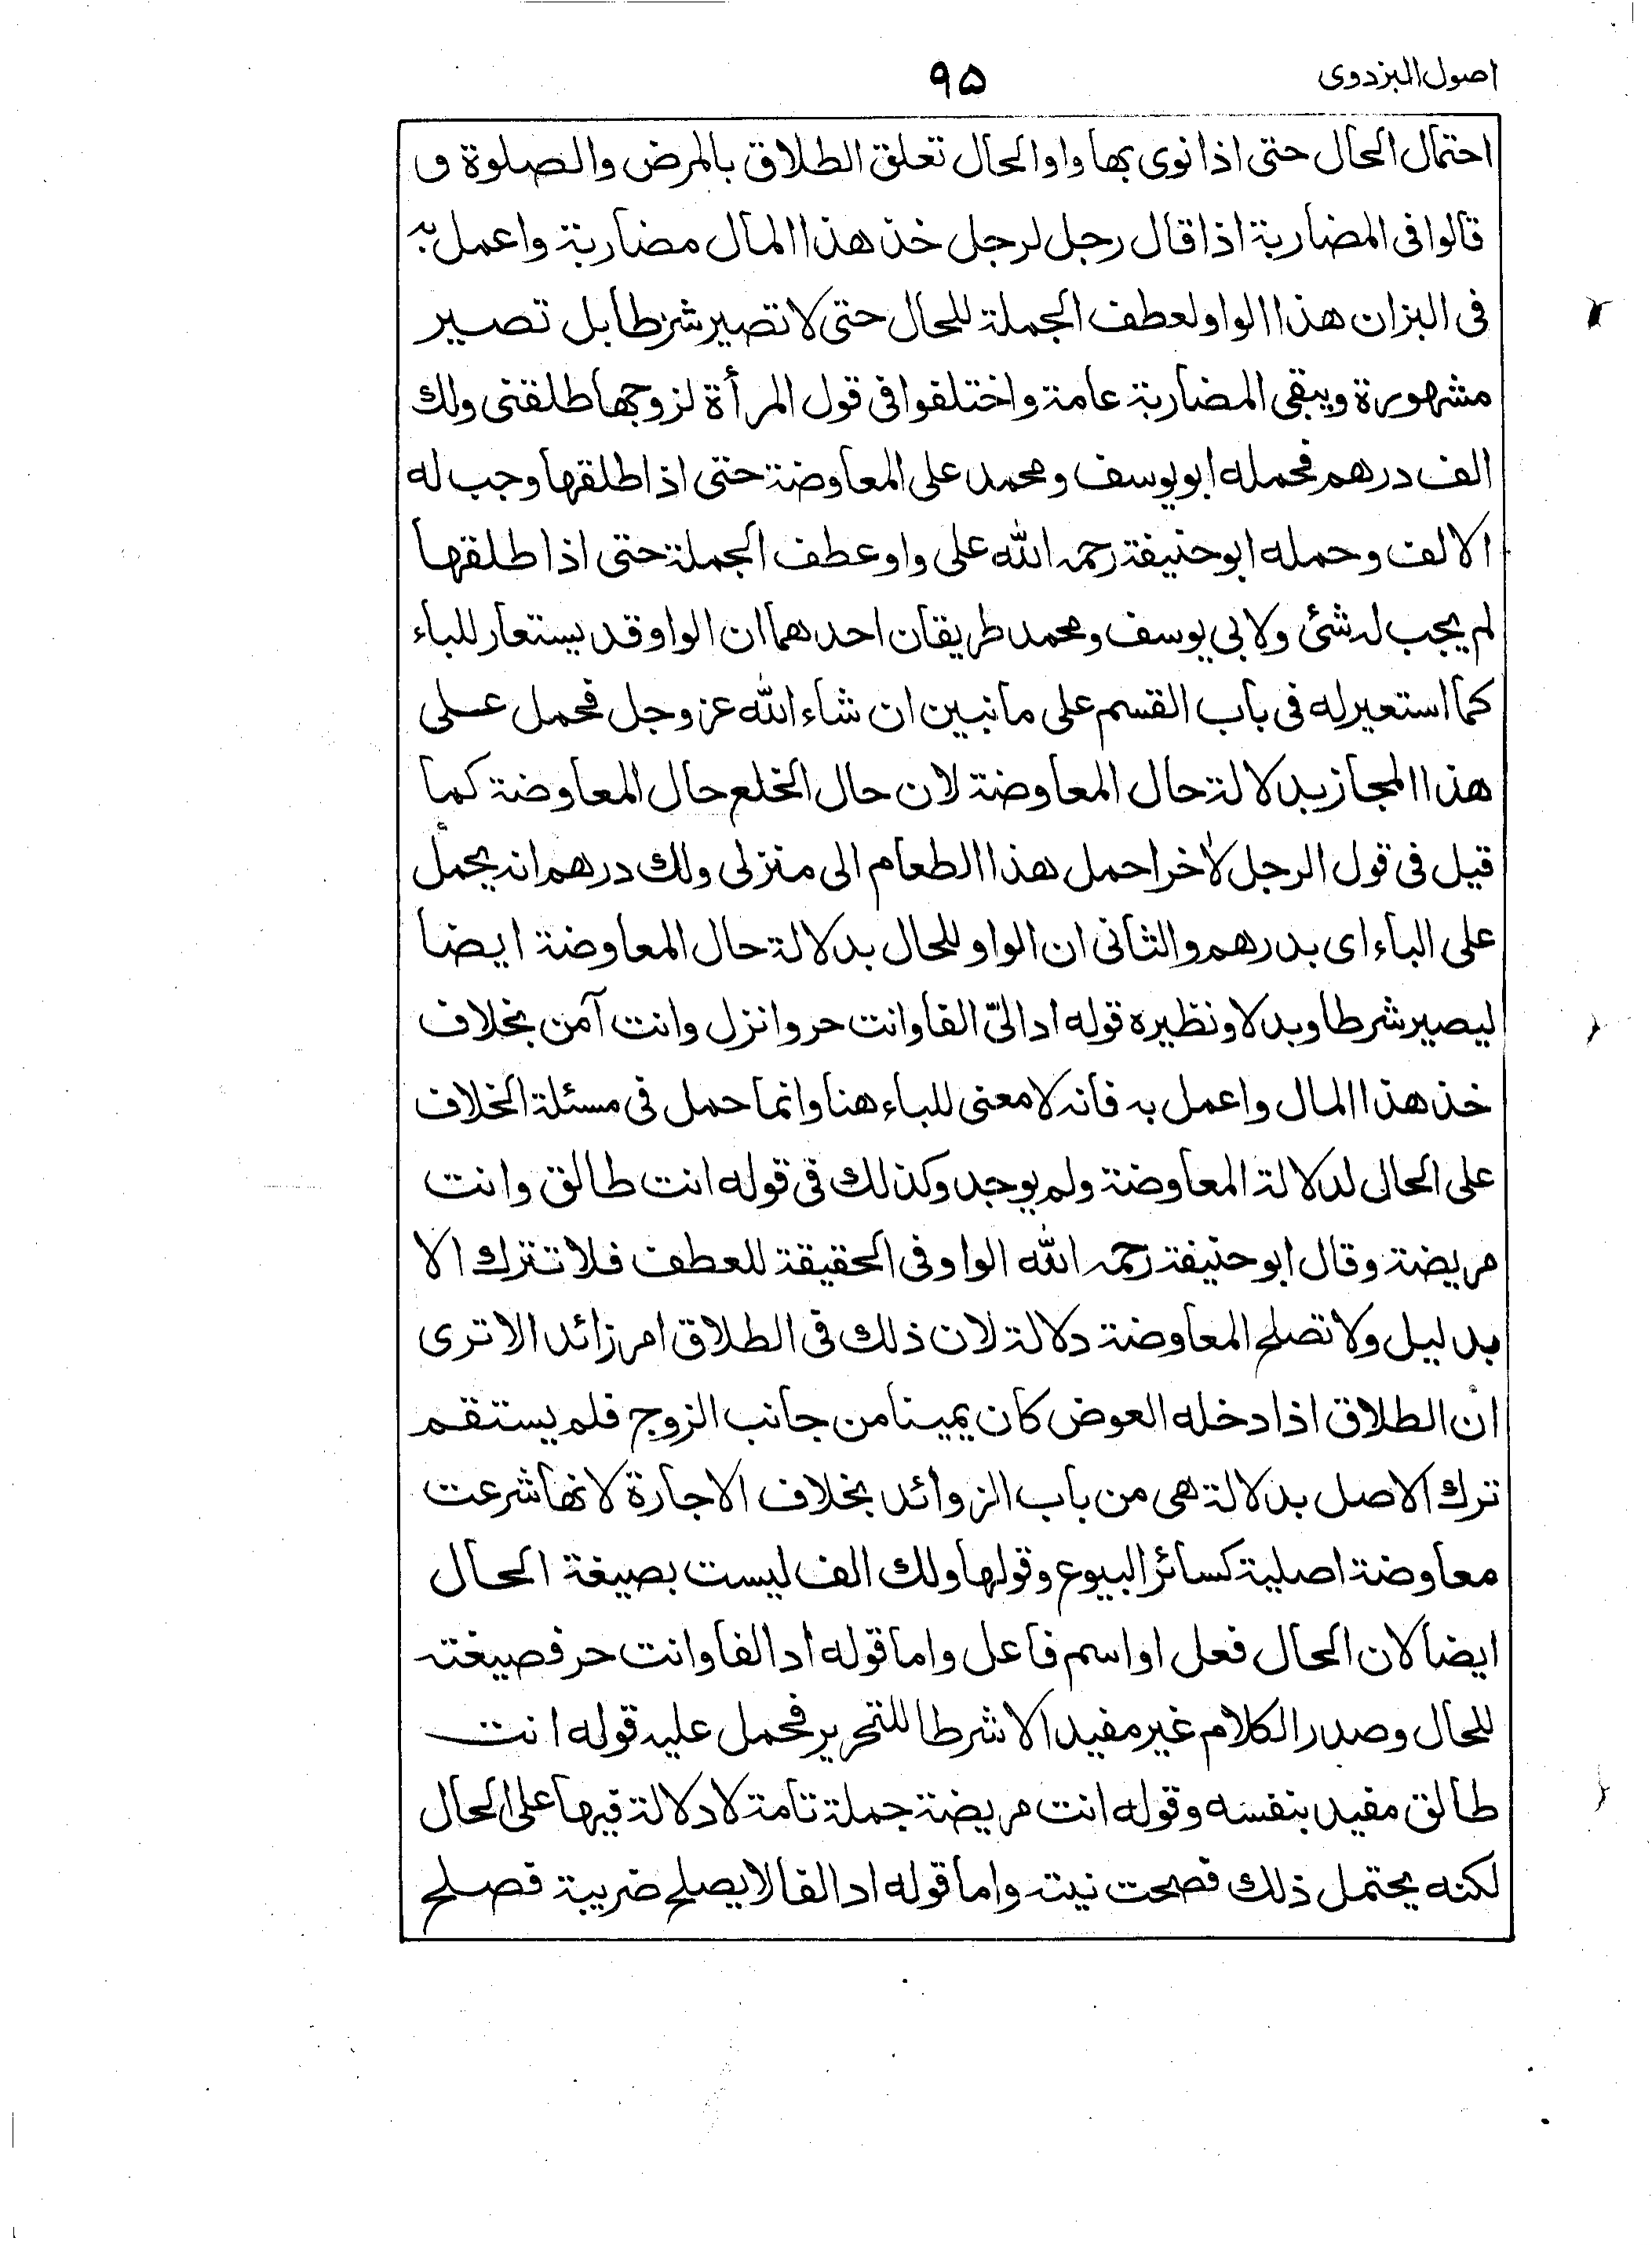 اصول البزدوی
۹۵
احتمال الحال حتی اذا نوی بها واو الحال تعلق الطلاق بالمرض والصلوة و
قالوا فی المضاربة اذا قال رجل لرجل خذ هذا المال مضاربة واعمل به
فی البزان هذا الواو لعطف الجملة للحال حتی لا تصیر شرطا بل تصیر
مشهورة ویبقی المضاربة عامة واختلفوا فی قول المرأة لزوجها طلقنی ولك
الف درهم فحمله ابو یوسف ومحمد علی المعاوضة حتی اذا طلقها وجب له
الالف وحمله ابو حنیفة رحمه الله علی واو عطف الجملة حتی اذا طلقها
لم یجب له شئ ولابی یوسف ومحمد طریقان احدهما ان الواو قد یستعار للباء
کما استعیر له فی باب القسم علی ما نبین ان شاء الله عز وجل فحمل علی
هذا المجاز بدلالة حال المعاوضة لان حال الخلع حال المعاوضة کما
قیل فی قول الرجل لاٰخر احمل هذا الطعام الی منزلی ولك درهم انه یحمل
علی الباء ای بدرهم والثانی ان الواو للحال بدلالة حال المعاوضة ایضا
لیصیر شرطا وبدلا ونظیره قوله اد الیّ الفا وانت حر وانزل وانت آمن بخلاف
خذ هذا المال واعمل به فانه لا معنی للباء هنا وانما حمل فی مسئلة الخلاف
علی الحال لدلالة المعاوضة ولم یوجد وکذلك فی قوله انت طالق وانت
مریضة وقال ابو حنیفة رحمه الله الواو فی الحقیقة للعطف فلا تترك الا
بدلیل ولا تصلح المعاوضة دلالة لان ذلك فی الطلاق امر زائد الا تری
ان الطلاق اذا دخله العوض کان یمینا من جانب الزوج فلم یستقم
ترك الاصل بدلالة هی من باب الزوائد بخلاف الاجارة لانها شرعت
معاوضة اصلیة کسائر البیوع وقولها ولك الف لیست بصیغة الحال
ایضا لان الحال فعل او اسم فاعل واما قوله اد الفا وانت حر فصیغته
للحال وصدر الکلام غیر مفید الا شرطا للتحریر فحمل علیه قوله انت
طالق مفید بنفسه وقوله انت مریضة جملة تامة لا دلالة فیها علی الحال
لکنه یحتمل ذلك فصحت نیته واما قوله اد الفا لا یصلح ضریبة فصلح